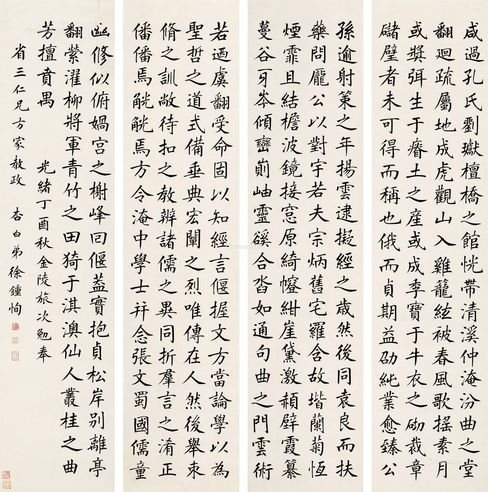 咸過孔氏劉嶽檀橋之館恍帶清溪仲淹汾曲之堂
翻迴疏屬地成虎觀山入雞籠絃被春風歌搖素月
或奬弭生于瘠土之座或成李寶于牛衣之劬裁章
儲璧者未可得而稱也俄而貞期益劭純業愈臻公
孫逾射策之年揚雲逮擬經之歲然後同袁良而扶
藥問龐公以對宇若夫宗炳舊宅羅含故堦蘭菊恆
煙霏且結檐波鏡接窓原綺幰紺崖黛激頳壁霞纂
蔓谷牙岑傾巒峛岫靈谿合沓如通句曲之門雲術
若迺虞翻受命固以知經言偃握文方當論學以為
聖哲之道式備垂典宏闡之烈唯傳在人然後舉束
脩之訓敞待扣之教辨諸儒之異同折羣言之淆正
皤皤焉觥觥焉方今淹中學士幷念張文蜀國儒童
幽修似俯媧宮之榭峰回偃蓋實抱貞松岸别離亭
翻紫濯柳將軍青竹之田猗于淇澳仙人叢桂之曲
芳擅賁禺 光緒丁酉秋金陵旅次勉奉
省三仁兄方家教政 杏白弟徐鍾恂